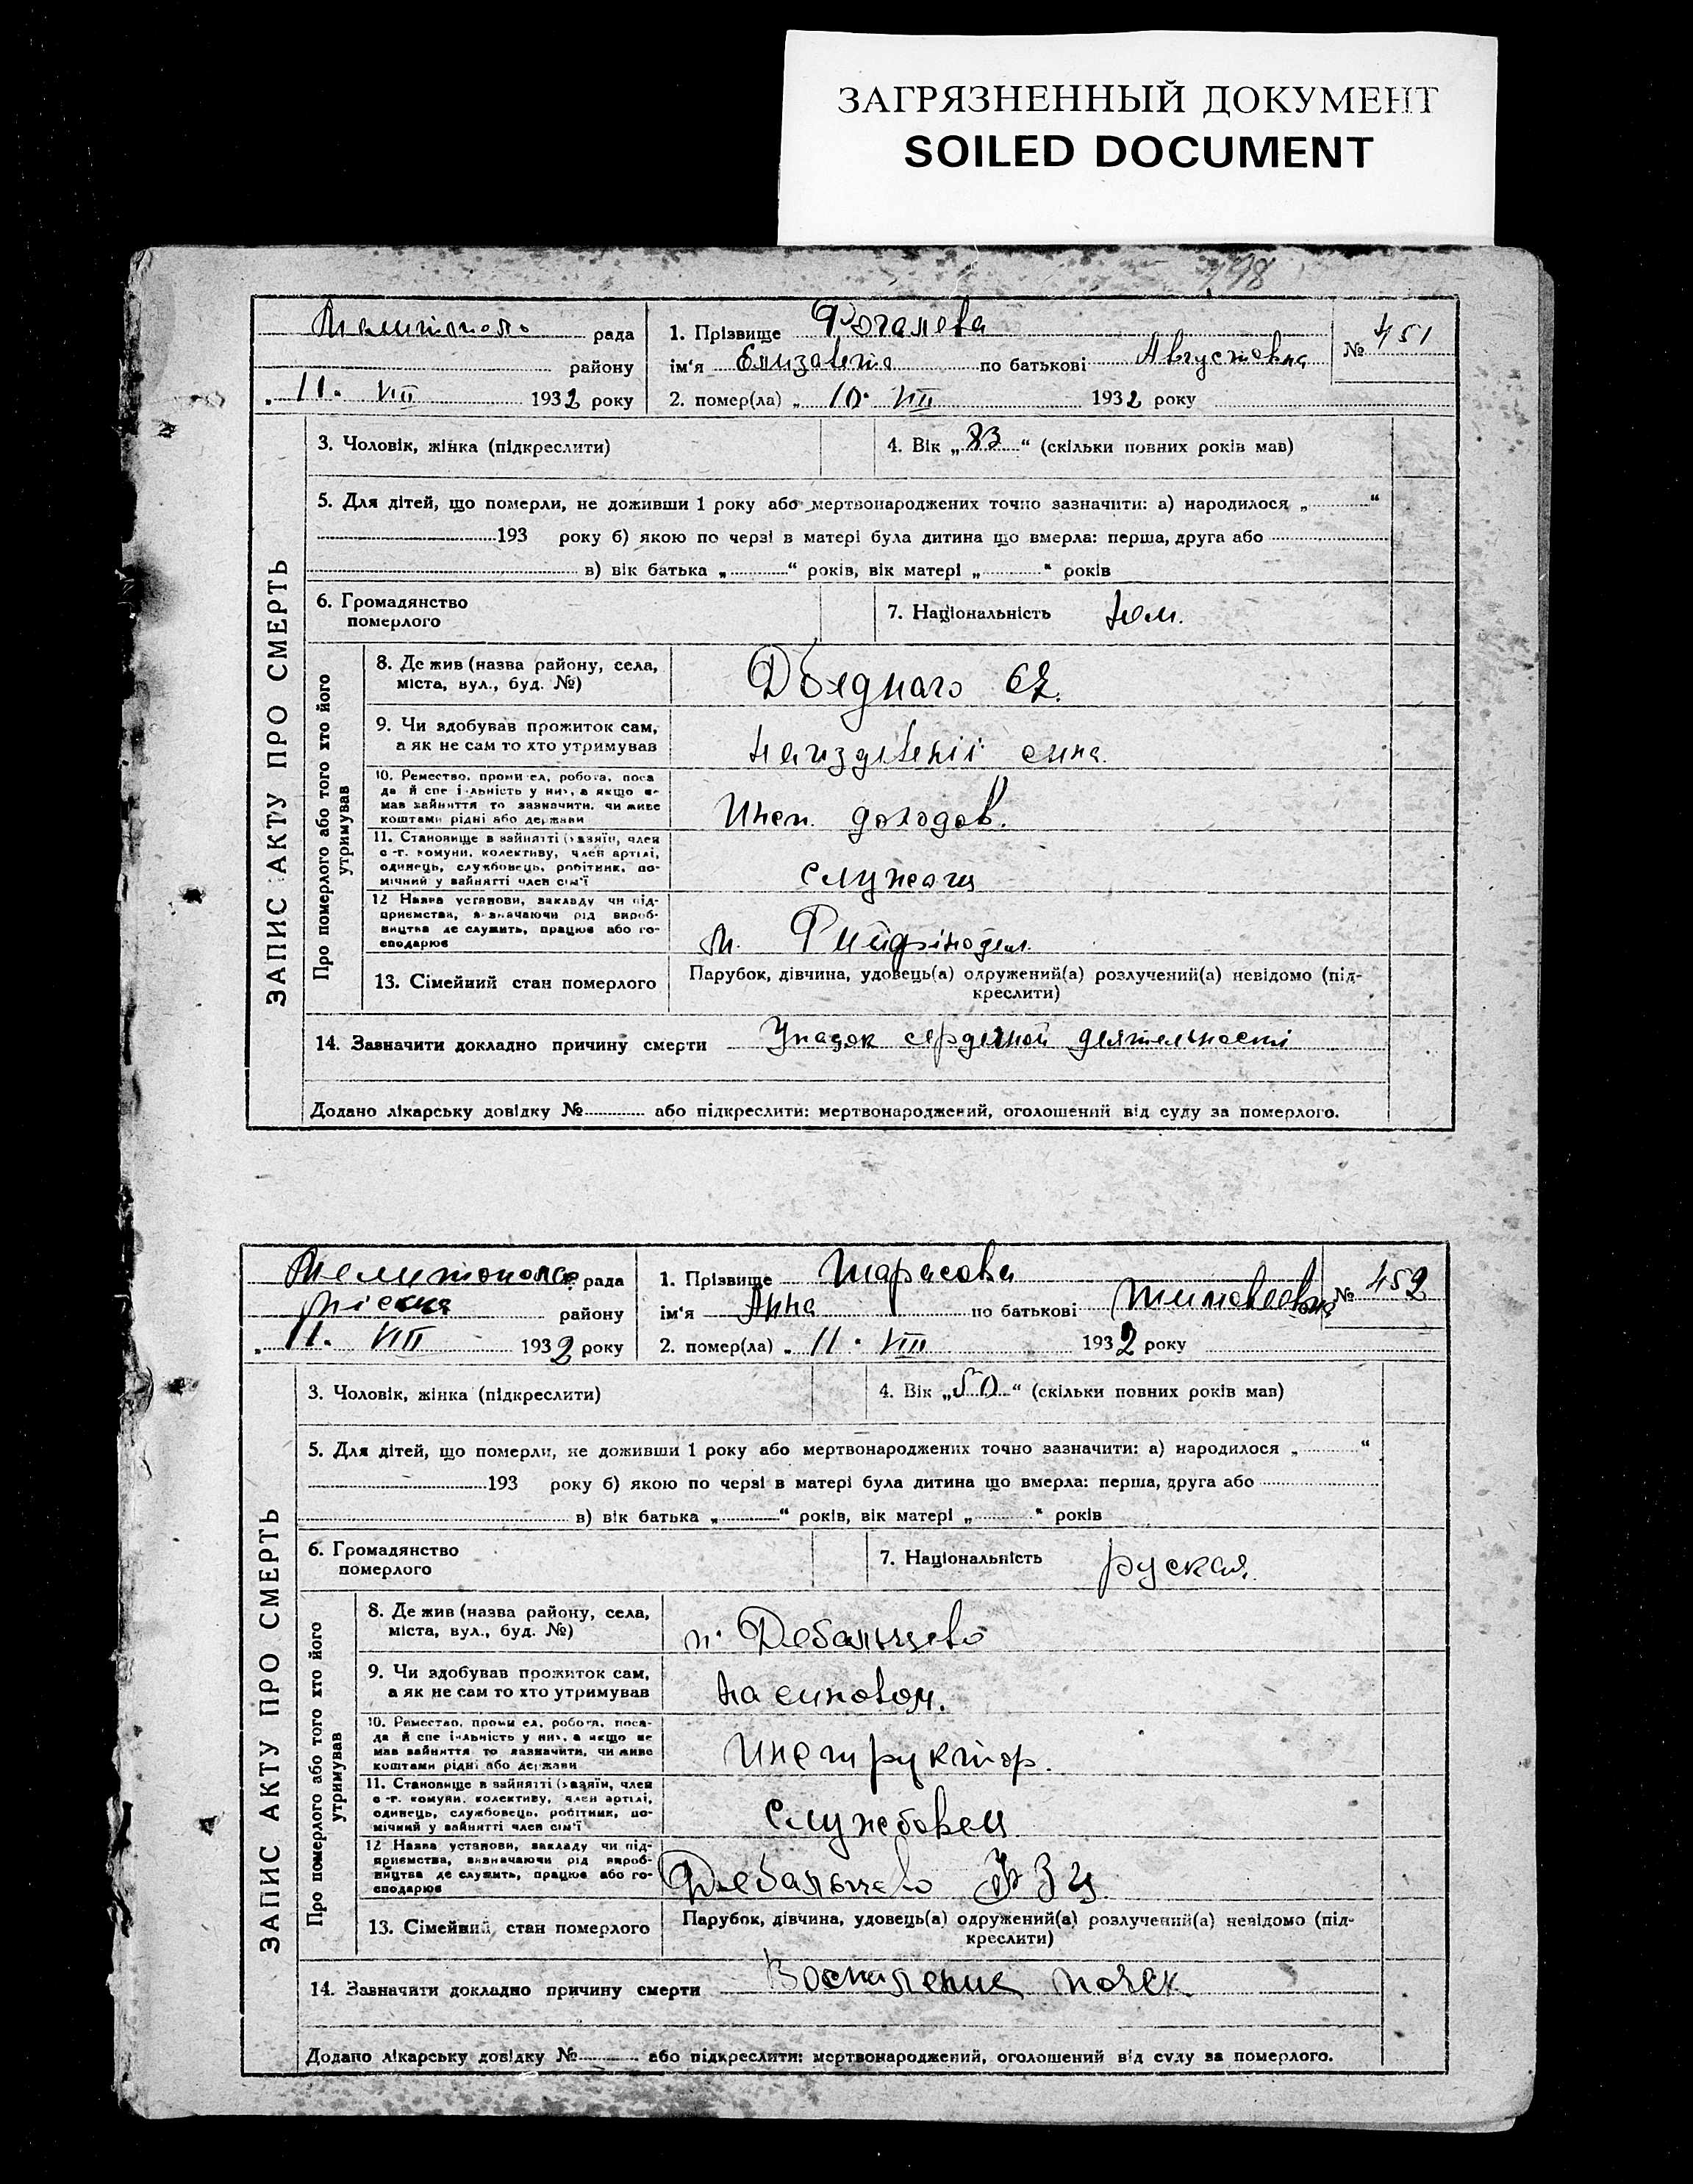 ЗАГРЯЗНЕННЫЙ ДОКУМЕНТ
SOILED DOCUMENT
198
Мелитополь рада
1. Прізвище
№ 451
району
ім'я Елизавета по батькові Августовна
11. VIII 1932 року
2. помер(ла) „ 10. VIII 1932 року
ЗАПИС АКТУ ПРО СМЕРТЬ
3. Чоловік, жінка (підкреслити)
4. Вік „83“ (скільки повних років мав)
5. Для дітей, що померли, не доживши 1 року або мертвонароджених точно зазначити: а) народилося „ “
193 року б) якою по черзі в матері була дитина що вмерла: перша, друга або
в) вік батька „ “ років, вік матері „ “ років
6. Громадянство
померлого
7. Національність Нем.
Про померлого або того хто його
утримував
8. Де жив (назва району, села,
міста, вул., буд. №)
Д Бедного 62
9. Чи здобував прожиток сам,
а як не сам то хто утримував
На сина.
10. Ремество, промисел, робота, поса
да й спеціальність у них, а якщо не
мав зайняття то зазначити, чи живе
коштами рідні або держави
Инсп. доходов.
11. Становище в зайнятті (хазяїн, член
с.-г. комуни, колективу, член артілі,
одинець, службовець, робітник, по-
мічний у зайнятті член сім'ї
служащ
12 Назва установи, закладу чи під-
приємства, визначаючи рід вироб-
ництва де служить, працює або го-
сподарює
М. Райфінотдел.
13. Сімейний стан померлого
Парубок, дівчина, удовець(а) одружений(а) розлучений(а) невідомо (під-
креслити)
14. Зазначити докладно причину смерти Упадок сердечной деятельності
Додано лікарську довідку № або підкреслити: мертвонароджений, оголошений від суду за померлого.
Мелитополь рада
1. Прізвище Тарасова
№ 452
міська району
ім'я Анна по батькові Тимофеевна
11. VIII 1932 року
2. помер(ла) „ 11. VIII 1932 року
ЗАПИС АКТУ ПРО СМЕРТЬ
3. Чоловік, жінка (підкреслити)
4. Вік „50“ (скільки повних років мав)
5. Для дітей, що померли, не доживши 1 року або мертвонароджених точно зазначити: а) народилося „ “
193 року б) якою по черзі в матері була дитина що вмерла: перша, друга або
в) вік батька „ “ років, вік матері „ “ років
6. Громадянство
померлого
7. Національність руская.
Про померлого або того хто його
утримував
8. Де жив (назва району, села,
міста, вул., буд. №)
п. Дебальцево
9. Чи здобував прожиток сам,
а як не сам то хто утримував
На
10. Ремество, промисел, робота, поса-
да й спеціальність у них, а якщо не
мав зайняття то зазначити, чи живе
коштами рідні або держави
Инструктор.
11. Становище в зайнятті (хазяїн, член
с.-г. комуни, колективу, член артілі,
одинець, службовець, робітник, по-
мічний у зайнятті член сім'ї
Службовец
12 Назва установи, закладу чи під-
приємства, визначаючи рід вироб-
ництва де служить, працює або го-
сподарює
Дебальцево
13. Сімейний стан померлого
Парубок, дівчина, удовець(а) одружений(а) розлучений(а) невідомо (під-
креслити)
14. Зазначити докладно причину смерти Воспаление почек.
Додано лікарську довідку № або підкреслити: мертвонароджений, оголошений від суду за померлого.